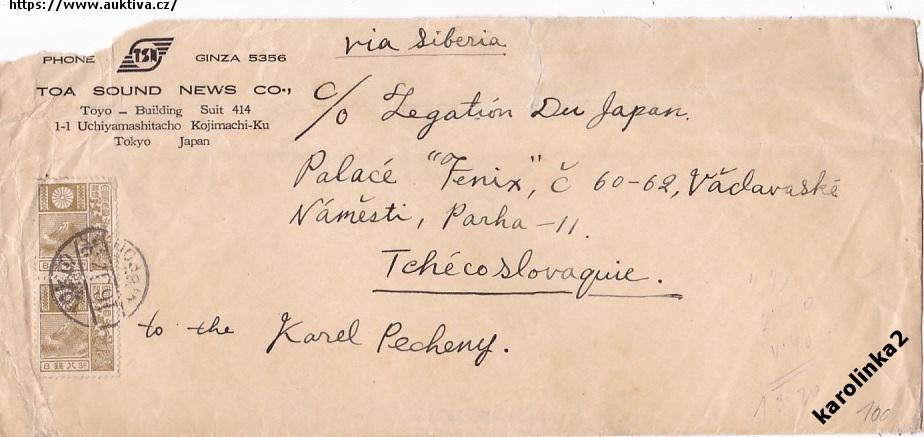 https://www.auktiva.cz/
via Siberia
PHONE TSN GINZA 5356
TOA SOUND NEWS CO.,
Toyo – Building Suit 414
1-1 Uchiyamashitacho Kojimachi-Ku
Tokyo Japan
c/o Legation Du Japan.
Palacé "Fenix", č 60-62, Václavaské
Náměsti, Parha-11.
Tchécoslovaquie.
to the Karel Pecheny.
karolinka2
100